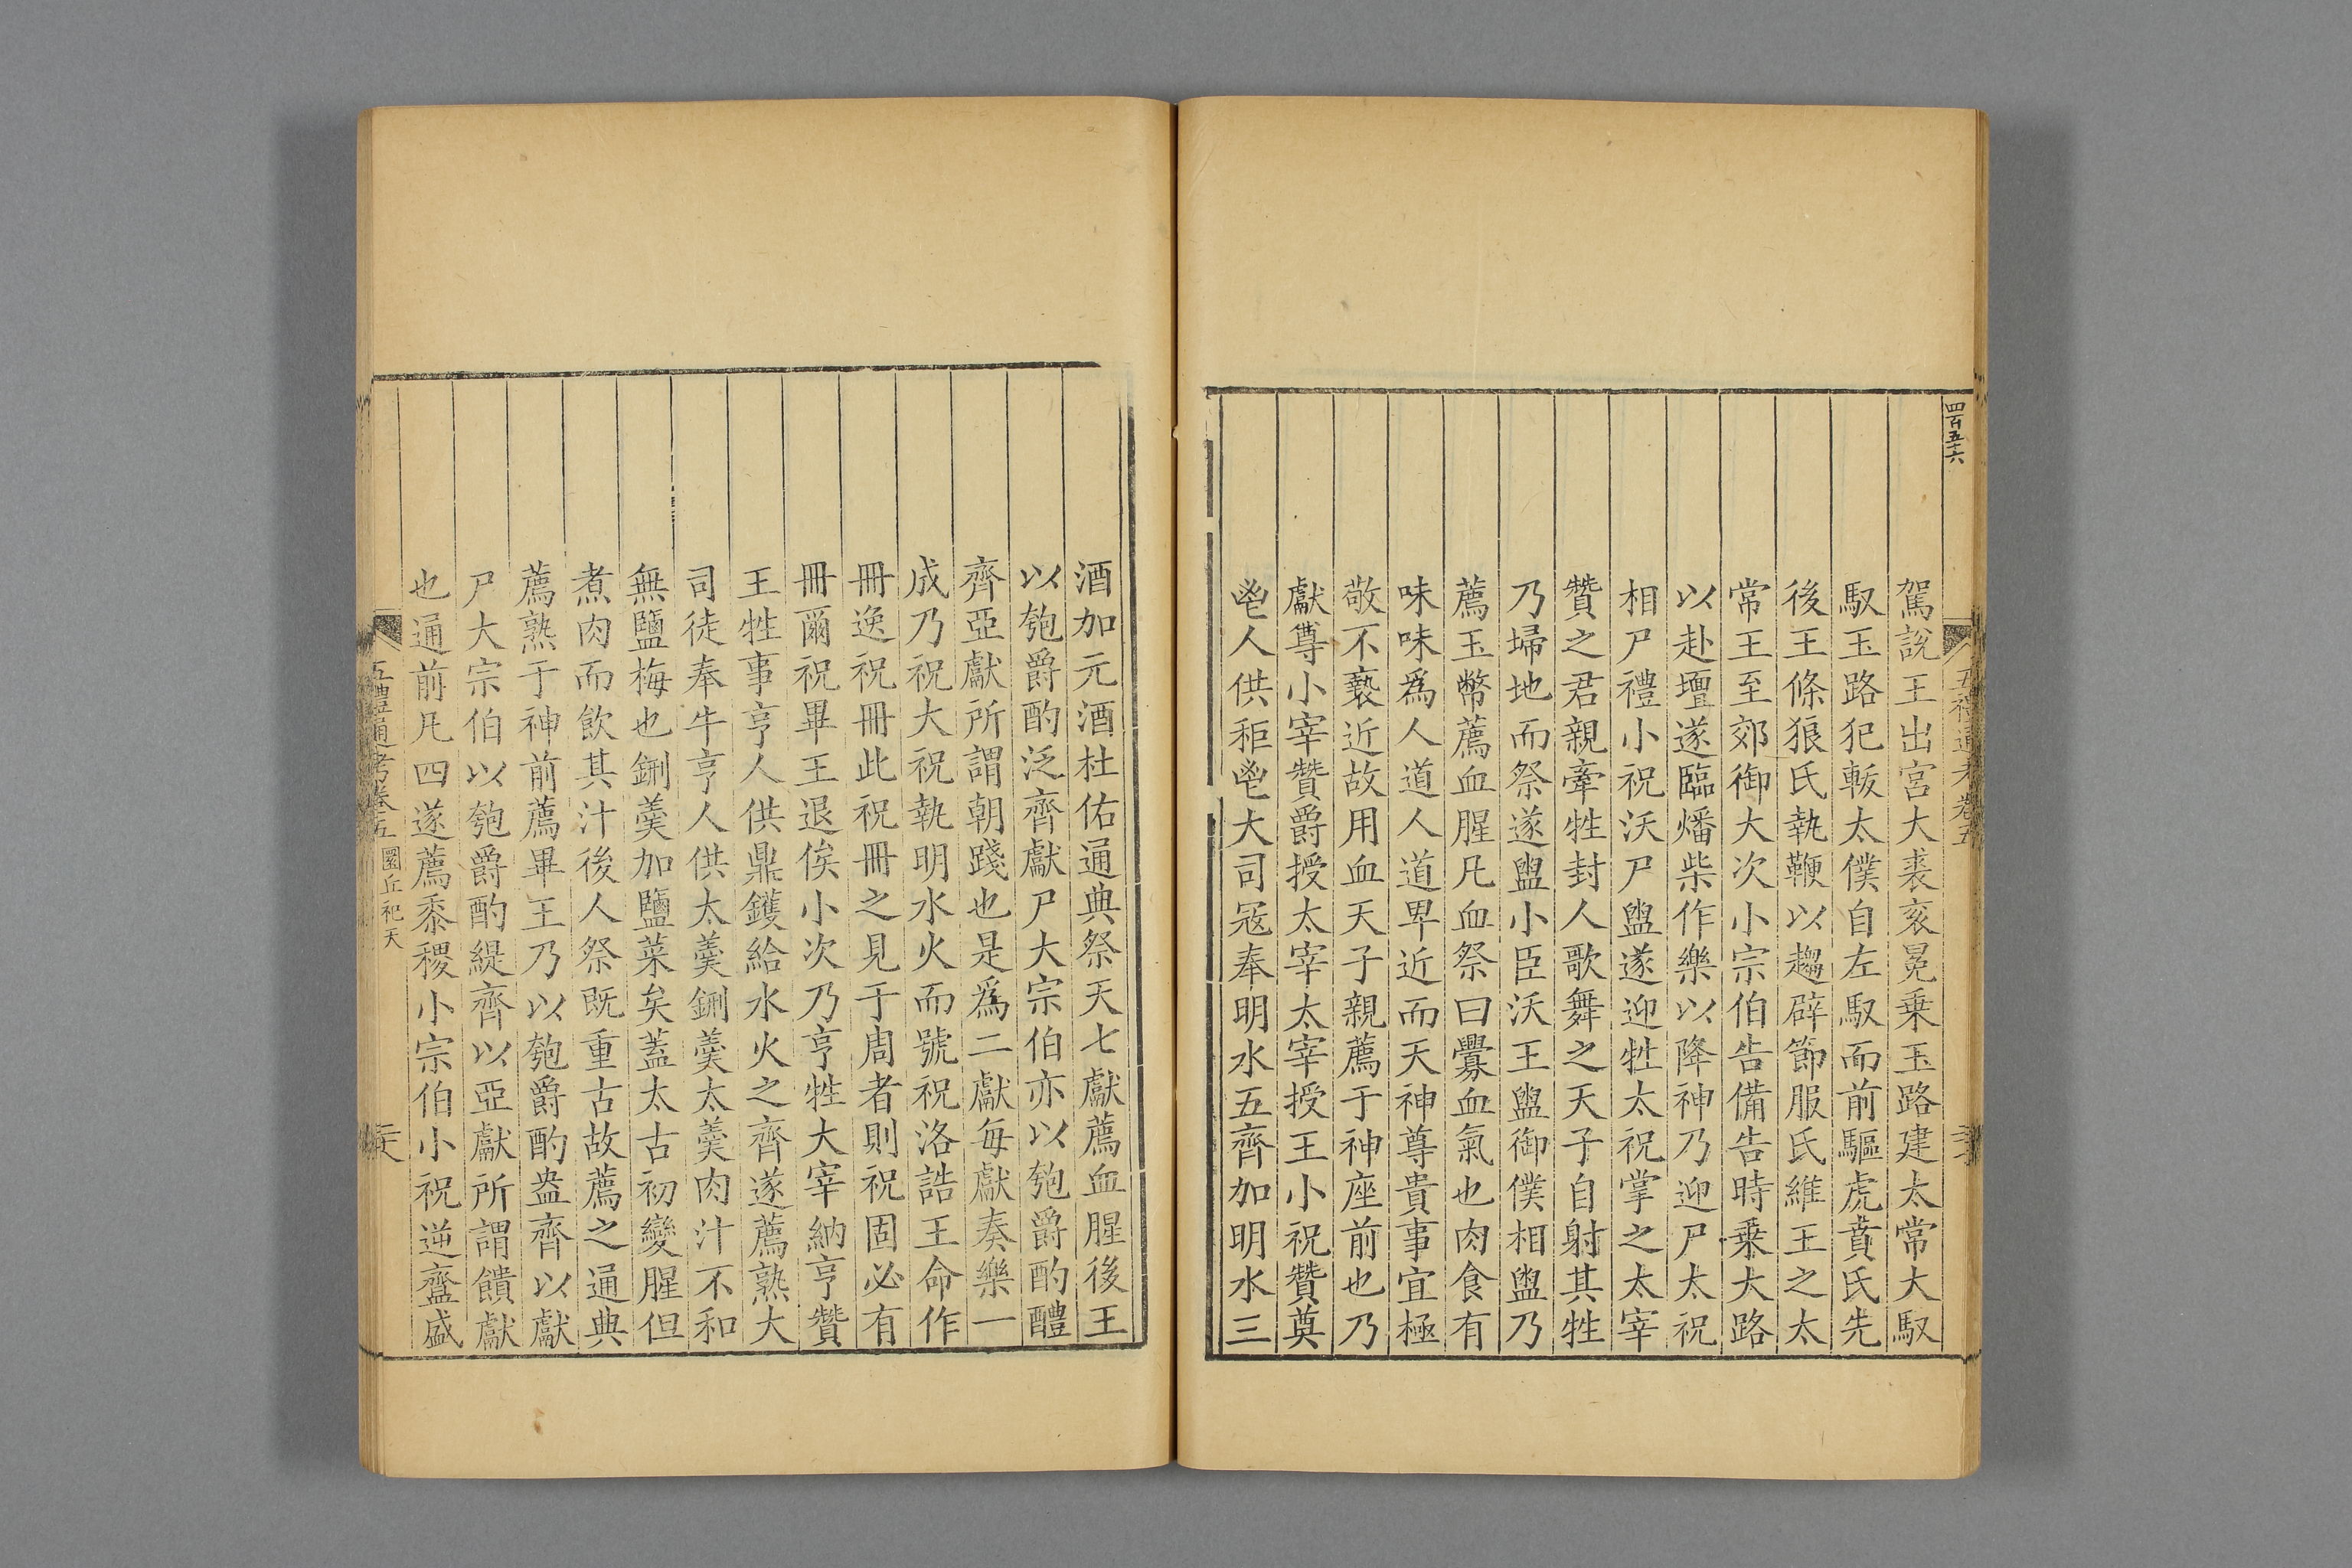 四百五十六
五禮通考卷五
駕說王出宮大裘衮冕乗玉路建太常大馭
馭玉路犯軷太僕自左馭而前驅虎賁氏先
後王條狼氏執鞭以趨辟節服氏維王之太
常王至郊御大次小宗伯告備告時乗大路
以赴壇遂臨燔柴作樂以降神乃迎尸太祝
相尸禮小祝沃尸盥遂迎牲太祝掌之太宰
贊之君親牽牲封人歌舞之天子自射其牲
乃埽地而祭遂盥小臣沃王盥御僕相盥乃
薦玉幣薦血腥凡血祭曰釁血氣也肉食有
味味爲人道人道卑近而天神尊貴事宜極
敬不褻近故用血天子親薦于神座前也乃
獻尊小宰贊爵授太宰太宰授王小祝贊奠
鬯人供秬鬯大司冦奉明水五齊加明水三
酒加元酒杜佑通典祭天七獻薦血腥後王
以匏爵酌泛齊獻尸大宗伯亦以匏爵酌醴
齊亞獻所謂朝踐也是爲二獻每獻奏樂一
成乃祝大祝執明水火而號祝洛誥王命作
冊逸祝冊此祝冊之見于周者則祝固必有
冊爾祝畢王退俟小次乃亨牲大宰納亨贊
王牲事亨人供鼎鑊給水火之齊遂薦熟大
司徒奉牛亨人供太羹鉶羹太羹肉汁不和
無鹽梅也鉶羹加鹽菜矣蓋太古初變腥但
煮肉而飲其汁後人祭既重古故薦之通典
薦熟于神前薦畢王乃以匏爵酌盎齊以獻
尸大宗伯以匏爵酌緹齊以亞獻所謂饋獻
也通前凡四遂薦黍稷小宗伯小祝逆齍盛
五禮通考卷五 圜丘祀天